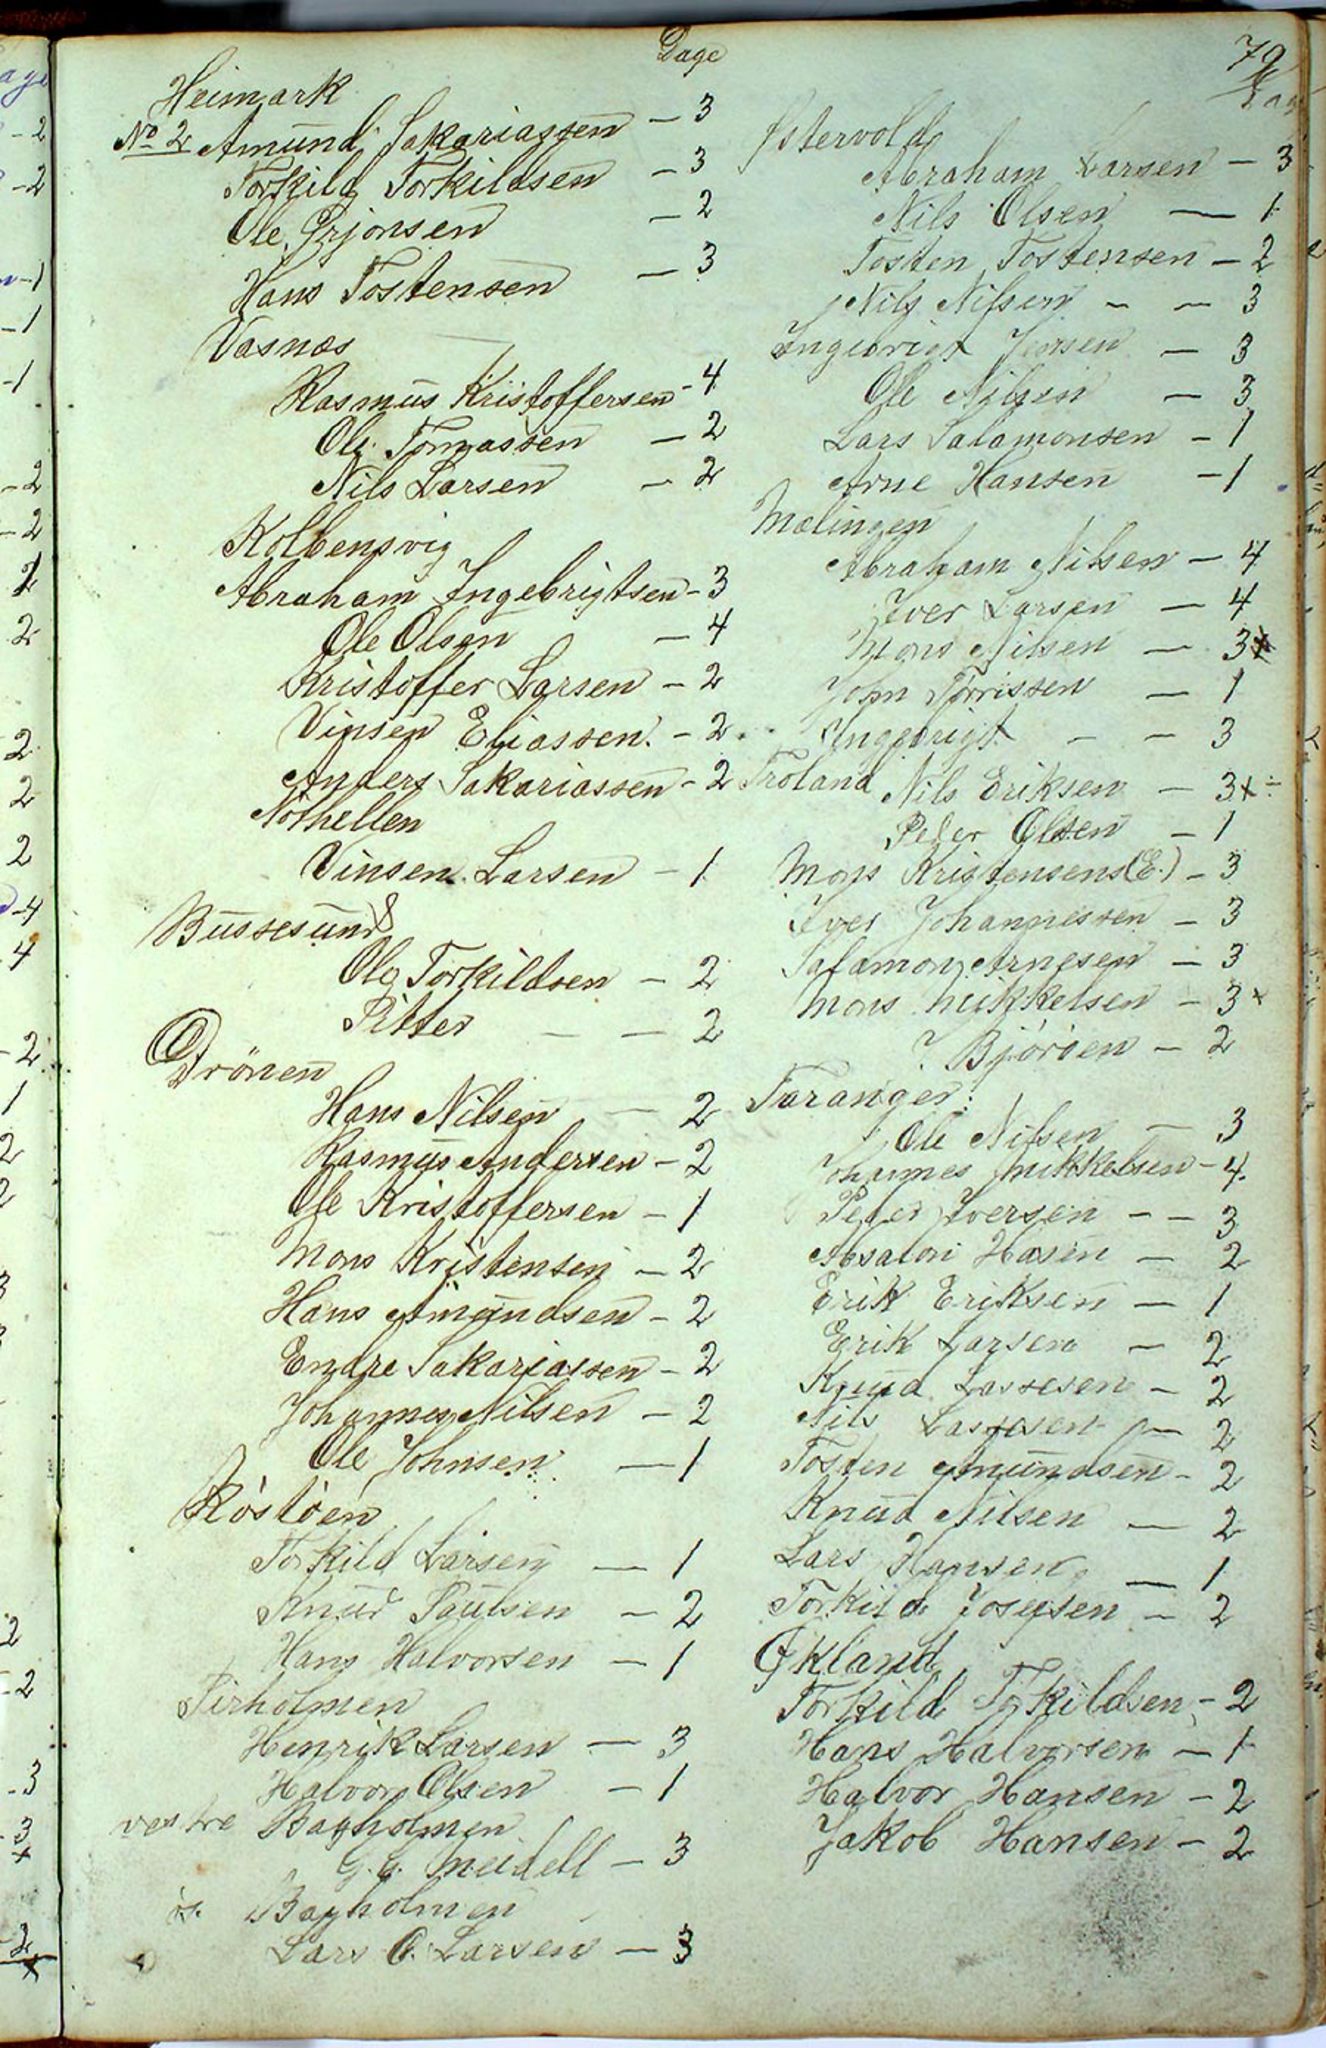 79
Dage
Heimark
No 2 Amund Sakariassen - 3
Torkild Torkildsen - 3
Ole Örjonsen - 2
Hans Tostensen - 3
Vasnæs
Rasmus Kristoffersen - 4
Ole Tomassen - 2
Nils Larsen - 2
Kolbensvig
Abraham Ingebrigtsen - 3
Ole Olsen - 4
Kristoffer Larsen - 2
Vinsen Eliassen. - 2
Anders Sakariassen - 2
Nöthellen
Vinsen Larsen - 1
Bussesund
Ole Torkildsen - 2
Pitter - - 2
Drönen
Hans Nilsen - 2
Rasmus Andersen - 2
Ole Kristoffersen - 1
Mons Kristensen - 2
Hans Amundsen - 2
Endre Sakariassen - 2
Johannes Nilsen - 2
Ole Johnsen - 1
Röstöen
Torkild Larsen - 1
Knud Paulsen - 2
Hans Halvorsen - 1
Sirholmen
Henrik Larsen - 3
Halvor Olsen - 1
vestre Bagholmen
G. G. Meidell - 3
ös. Bagholmen
Lars O. Larsen - 3
Dag
Østervold
Abraham Larsen - 3
Nils Olsen - 1
Tosten Tostensen - 2
Nils Nilsen - - 3
Ingebrigt - 3
Ole Nilsen - 3
Lars Salamonsen - 1
Arne Hansen - 1
Mælingen
Abraham Nilsen - 4
Iver Larsen - 4
Mons Nilsen - 3x
John Torrissen - 1
Inggbrigt - - 3
Troland Nils Eriksen - 3x÷
Peder Olsen - 1
Mons Kristensens (E.) - 3
Iver Johannessen - 3
Salamon Arnesen - 3
Mons Mikkelsen - 3x
? Björöen - 2
Taranger:
Ole Nilsen - 3
Johannes Mikkelsen - 4
Peder Iversen - - 3
Absalon Hasen - 2
Erik Eriksen - 1
Erik Larsen - 2
Knud Lassesen - 2
Nils Lassesen - 2
Tosten Amundsen - 2
Knud Nilsen - 2
Lars Hansen - 1
Torkild Josefsen - 2
Økland
Torkild Torkildsen - 2
Hans Halvorsen - 1
Halvor Hansen - 2
Jakob Hansen - 2